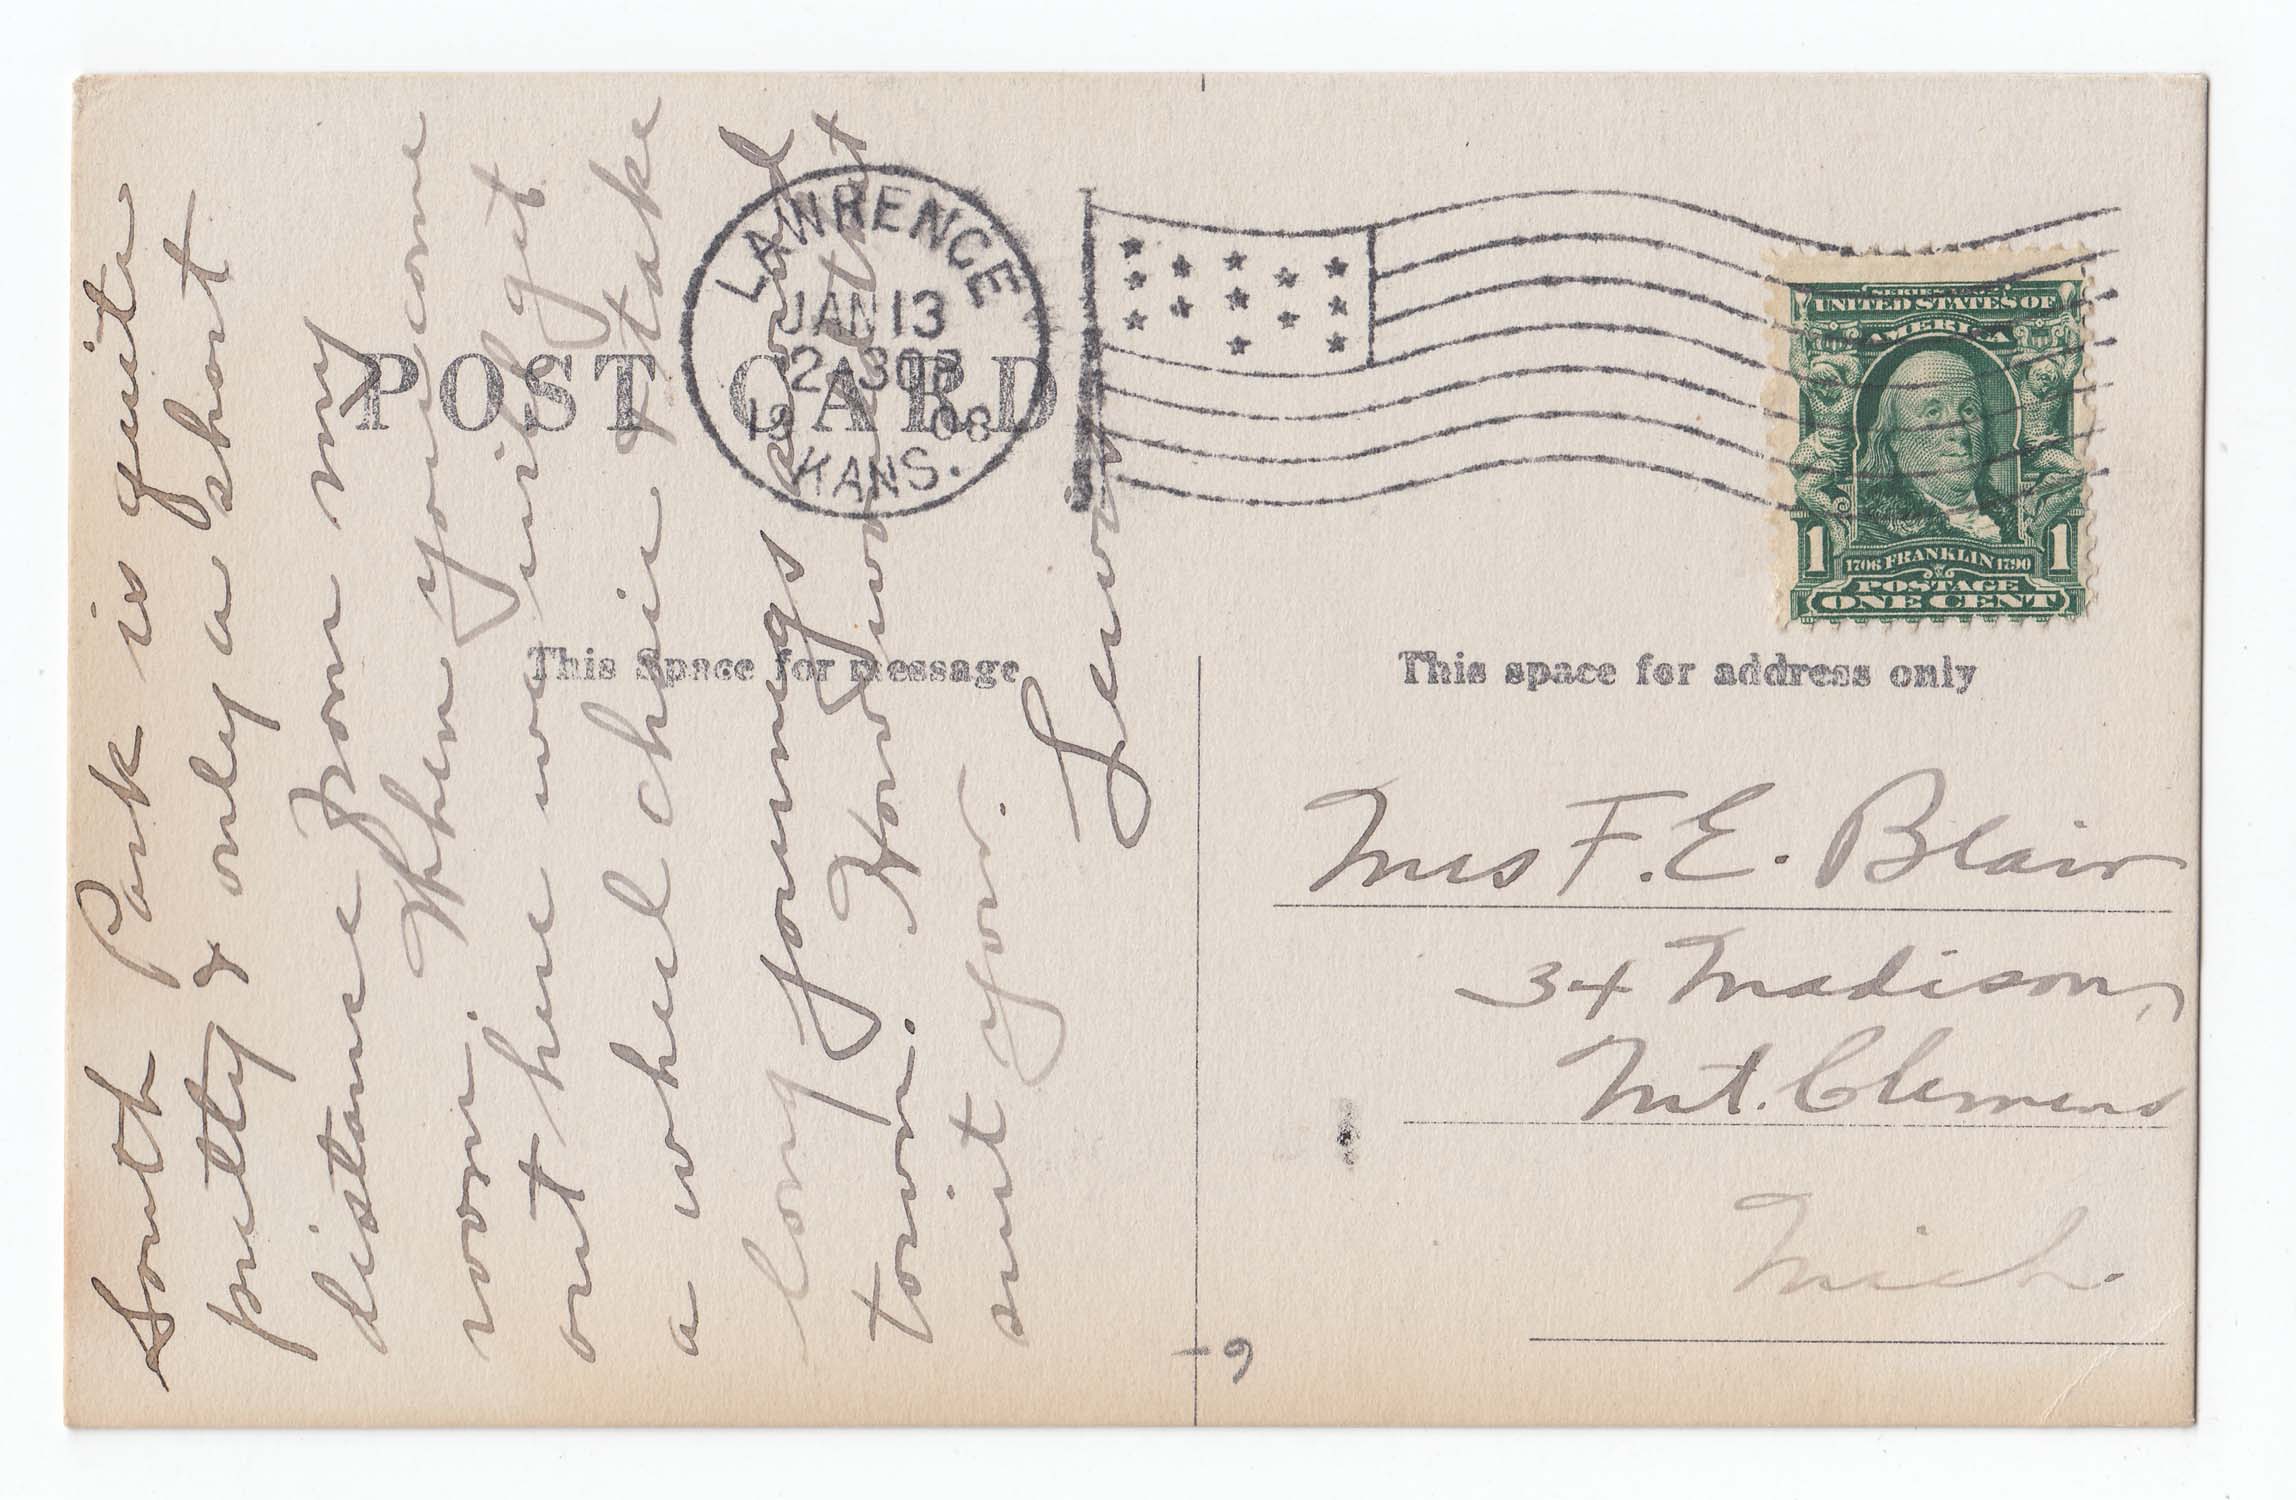 POST CARD
This space for message
South Park is quite
pretty & only a short
distance from my
room. When you come
out here we will get
a wheel chair & take
long journeys around
town. How would that
suit you.
Lewis
LAWRENCE
JAN 13
2 30P
1908
KANS.
SERIES 1902
UNITED STATES OF
AMERICA
1 1706 FRANKLIN 1790 1
POSTAGE
ONE CENT
This space for address only
Mrs F. E. Blair
34 Madison,
Mt. Clemens
Mich.
-9